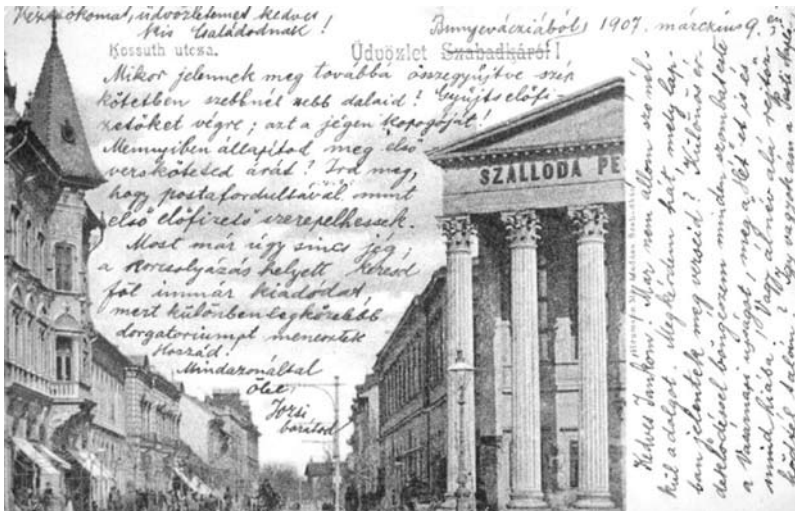 Kézcsókomat, üdvözletemet kedves
kis Családodnak!
Bunyevácziából, 1907. márczius 9. én
Kossuth utcza.
Üdvözlet Szabadkáról!
Mikor jelennek meg továbbá összegyűjtve szép
kötetben szebbnél szebb dalaid? Gyűjts előfi-
zetőket végre; azt a jégen kopogóját!
Mennyiben állapítod meg első
versköteted árát? Ird meg,
hogy postafordultával mint
első előfizető szerepelhessek.
Most már úgy sincs jég,
a korcsolyázás helyett keresd
föl immár kiadódat,
mert különben legközelebb
dorgatoriumot menesztek
Hozzád!
Mindazonáltal
ölel
Józsi
barátod
SZALLODA PE
Kedves Jankóm! Már nem állom szó nél-
kül a dolgot. Megkérdem hát, mely lap-
ban jelentek meg verseid? Különös ér-
deklődéssel böngészem minden szombat este
a Vasárnapi ujságot, meg a Hét et is és
mind hiába! Vagy ál név alá rejtőz-
ködtél talán? Így vagyok én a Pesti